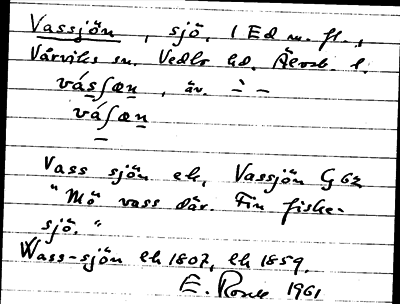 Vassjön, sjö. (Ed m. fl.,
Vårviks sn. Vedbo hd. Älvsb. l.
vás∫æn, äv. ` –
vá∫æn
Vass sjön ek, Vassjön G 62
"Mö vass där. Fin fiske-
sjö."
Wass-sjön lh 1807, lh 1859.
E. 1961